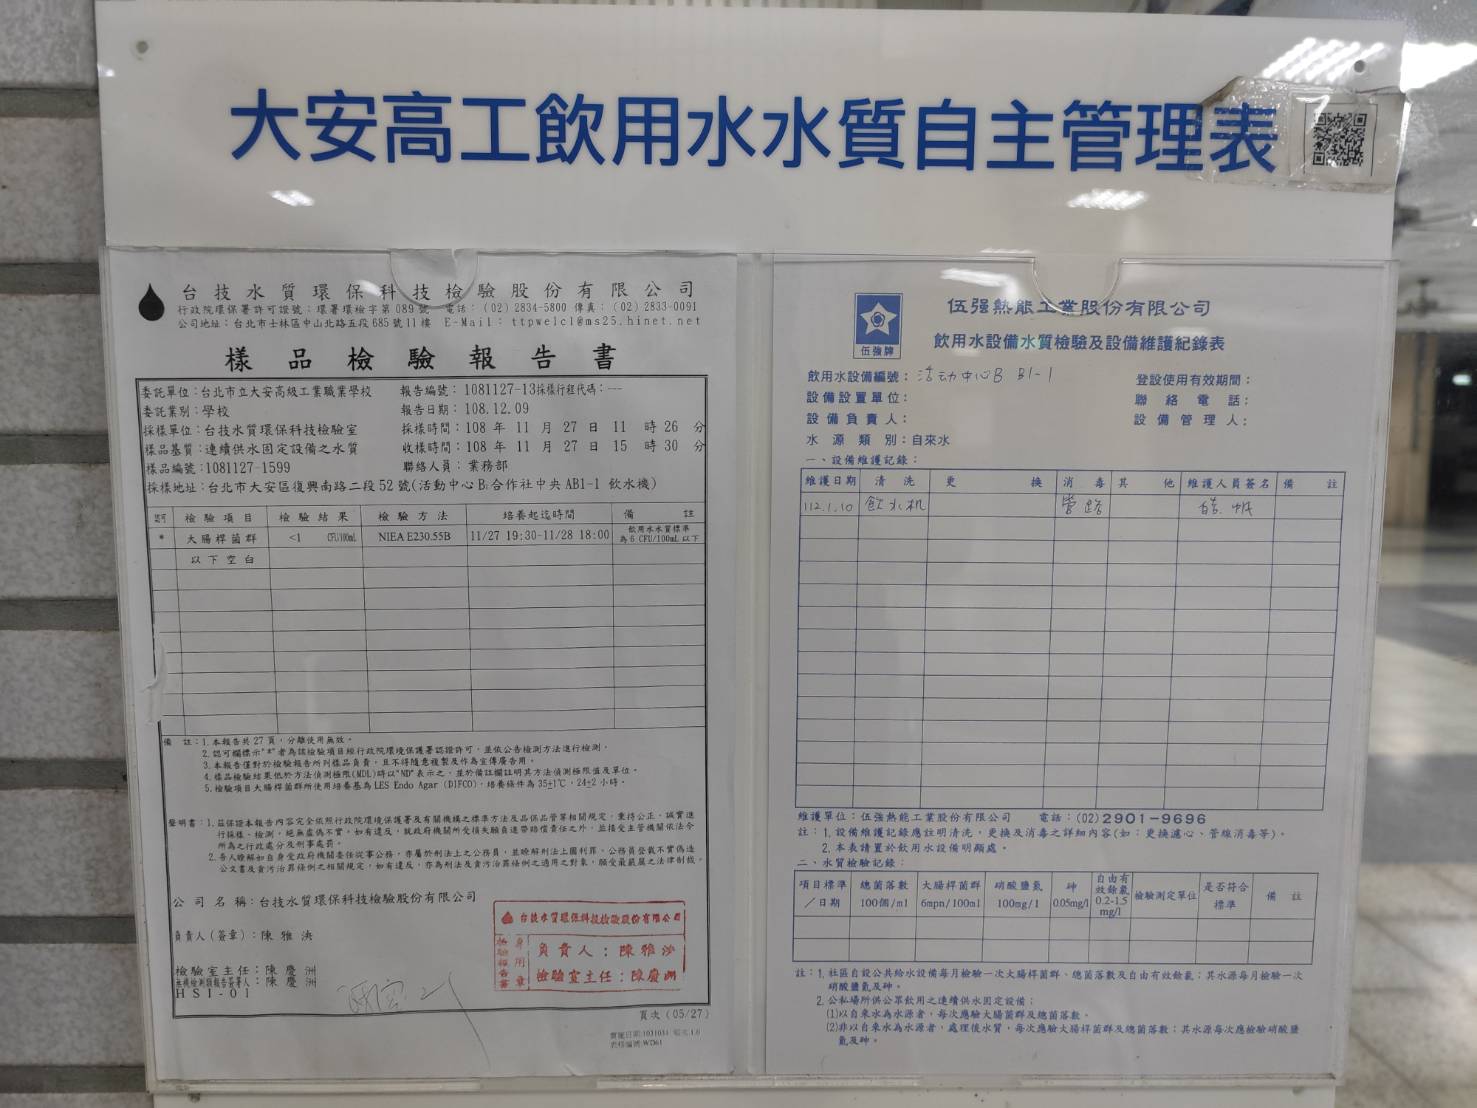 大安高工飲用水水質自主管理表
台技水質環保科技檢驗股份有限公司
行政院環保署許可證號：環署環檢字第089號 電話：(02) 2834-5800 傳真：(02) 2833-0091
公司地址：台北市士林區中山北路五段685號11樓 E-Mail: ttpwelcl@ms25.hinet.net
樣品檢驗報告書
委託單位：台北市立大安高級工業職業學校 報告編號：1081127-13採樣行程代碼：---
委託業別：學校 報告日期：108.12.09
採樣單位：台技水質環保科技檢驗室 採樣時間：108 年 11 月 27 日 11 時 26 分
樣品基質：連續供水固定設備之水質 收樣時間：108 年 11 月 27 日 15 時 30 分
樣品編號：1081127-1599 聯絡人員：業務部
採樣地址：台北市大安區復興南路二段52號(活動中心B:合作社中央AB1-1 飲水機)
認可 檢驗項目 檢驗結果 檢驗方法 培養起迄時間 備註
* 大腸桿菌群 <1 CFU/100mL NIEA E230.55B 11/27 19:30-11/28 18:00 飲用水水質標準為6 CFU/100mL以下
以下空白
備 註：1.本報告共27頁，分離使用無效。
2.認可欄標示"*"者為該檢驗項目經行政院環境保護署認證許可，並依公告檢測方法進行檢測。
3.本報告僅對於檢驗報告所列樣品負責，且不得隨意複製及作為宣傳廣告用。
4.樣品檢驗結果低於方法偵測極限(MDL)時以"ND"表示之，並於備註欄註明其方法偵測極限值及單位。
5.檢驗項目大腸桿菌群所使用培養基為LES Endo Agar (DIFCO)，培養條件為35±1℃，24±2小時。
聲明書：1.茲保證本報告內容完全依照行政院環境保護署及有關機關之標準方法及品保品管等相關規定，秉持公正、誠實進
行採樣、檢測，絕無虛偽不實，如有違反，就政府機關所受損失願負連帶賠償責任之外，並接受主管機關依法令
所為之行政處分及刑事處罰。
2.吾人瞭解如自身受政府機關委任從事公務，亦屬於刑法上之公務員，並瞭解刑法上圖利罪、公務員登載不實偽造
公文書及貪污治罪條例之相關規定，如有違反，亦為刑法及貪污治罪條例之適用之對象，願受最嚴厲之法律制裁。
公司名稱：台技水質環保科技檢驗股份有限公司
負責人(簽章)：陳雅
檢驗室主任：陳慶洲
陳慶洲
HSI-01
台技水質環保科技檢驗股份有限公司
檢驗報告專用章
負責人：陳雅
檢驗室主任：陳慶洲
頁次 (05/27)
伍強牌
伍强熱能工業股份有限公司
飲用水設備水質檢驗及設備維護紀錄表
飲用水設備編號：活动中心B B1-1
登設使用有效期間：
設備設置單位：
聯絡電話：
設備負責人：
設備管理人：
水源類別：自來水
一、設備維護記錄：
維護日期 清洗 更換 消毒 其他 維護人員簽名 備註
112.1.10 飲水机 管路
維護單位：伍强熱能工業股份有限公司 電話：(02)2901-9696
註：1.設備維護記錄應註明清洗，更換及消毒之詳細內容(如：更換濾心、管線消毒等)。
2.本表請置於飲用水設備明顯處。
二、水質檢驗記錄：
項目標準／日期 總菌落數 100個/ml 大腸桿菌群 6mpn/100ml 硝酸鹽氮 100mg/l 砷 0.05mg/l 自由有效餘氯 0.2-1.5 mg/l 檢驗測定單位 是否符合標準 備註
註：1.社區自設公共給水設備每月檢驗一次大腸桿菌群、總菌落數及自由有效餘氯；其水源每月檢驗一次
硝酸鹽氮及砷。
2.公私場所供公眾飲用之連續供水固定設備：
(1)以自來水為水源者，每次應驗大腸菌群及總菌落數。
(2)非以自來水為水源者，處理後水質，每次應驗大腸桿菌群及總菌落數；其水源每次應檢驗硝酸鹽
氮及砷。